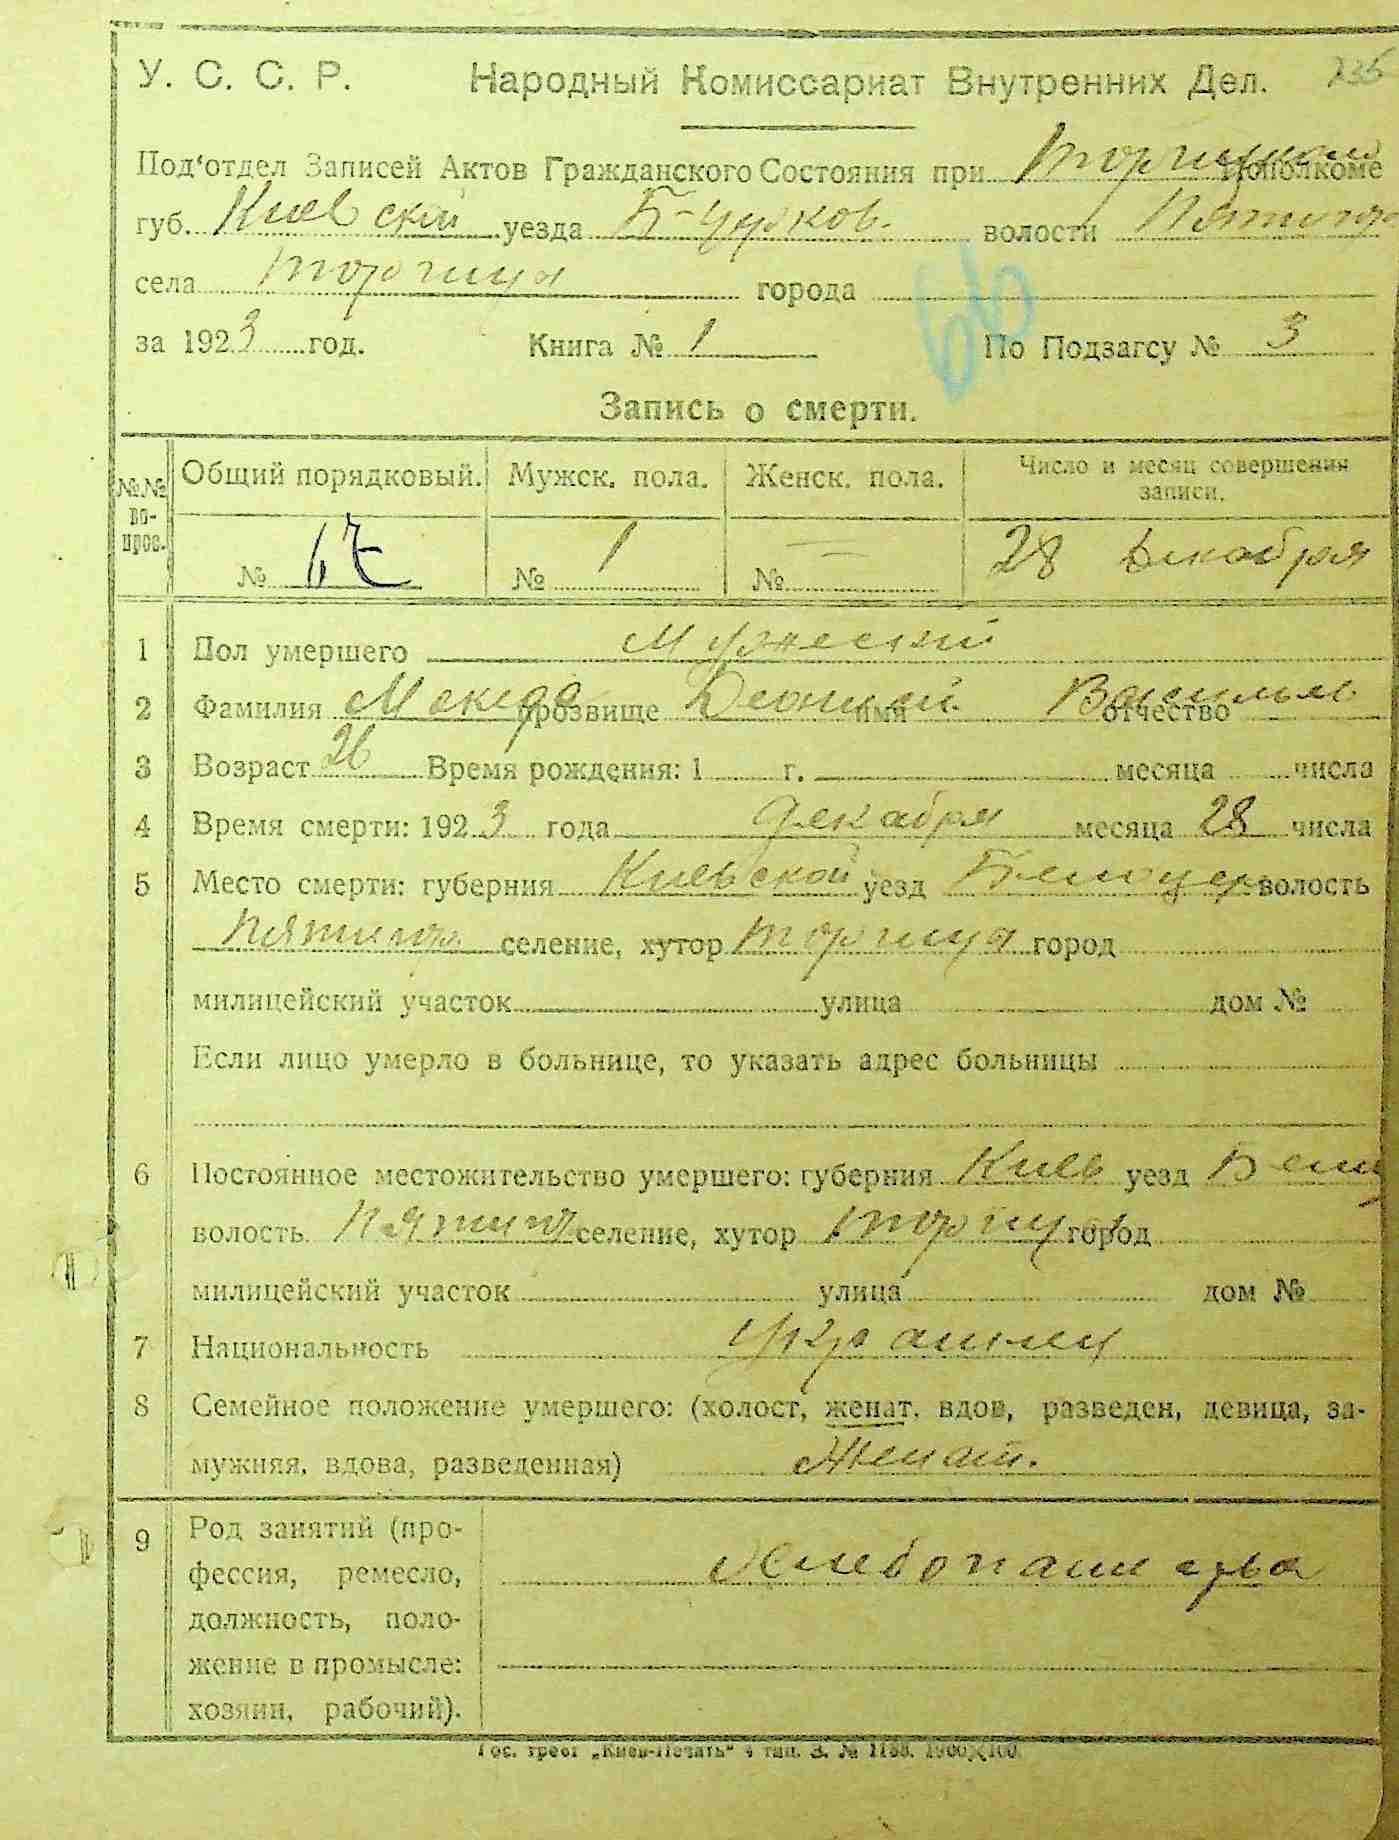 У. С. С. Р. Народный Комиссариат Внутренних Дел. 235
Под'отдел Записей Актов Гражданского Состояния при Торчицком Исполкоме
губ. Киевской уезда Б-Церков. волости Пятигор
села Торчица города
за 1923 год. Книга № 1 По Подзагсу № 3
Запись о смерти.
№№ вопрос. Общий порядковый. Мужск. пола. Женск. пола. Число и месяц совершения записи.
№ 67 № 1 № — 28 Декабря
1 Пол умершего Мужеский
2 Фамилия прозвище имя Васильев отчество
3 Возраст 26 Время рождения: 1 г. месяца числа
4 Время смерти: 1923 года декабря месяца 28 числа
5 Место смерти: губерния Киевской уезд Белоцер волость
Пятигор селение, хутор Торчица город
милицейский участок улица дом №
Если лицо умерло в больнице, то указать адрес больницы
6 Постоянное местожительство умершего: губерния Киев уезд Белоц
волость Пятигор селение, хутор Торчиц город
милицейский участок улица дом №
7 Национальность Украинец
8 Семейное положение умершего: (холост, женат, вдов, разведен, девица, за-
мужняя, вдова, разведенная) Женат.
9 Род занятий (про-
фессия, ремесло, Хлебопашества
должность, поло-
жение в промысле:
хозяин, рабочий).
Гос. трест „Киев-Печать" 4 тип. З. № 1100×100.